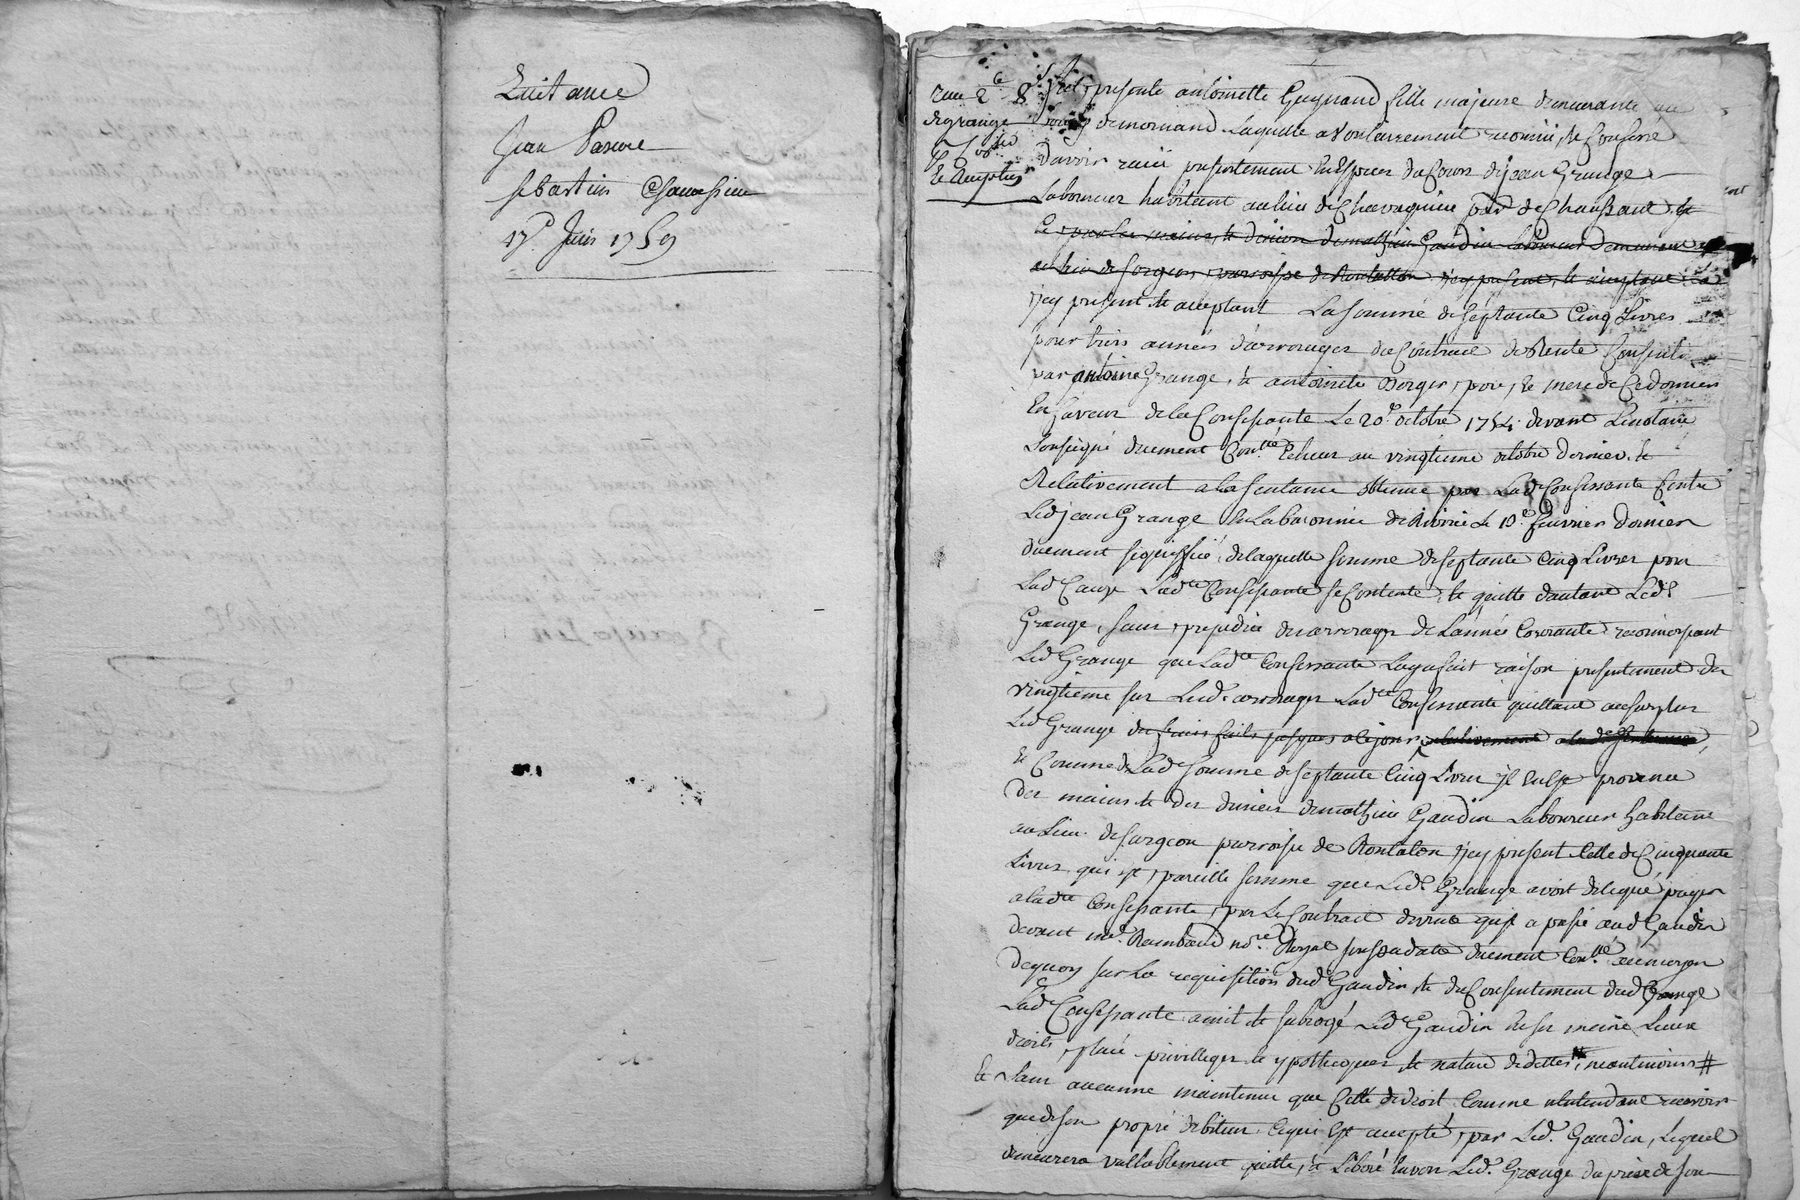 Quitance
Jean
sebastien
17e Juin 1759
fut presente antoinette Guynand fille majeure demeurante au
demornand laquelle a volontairement reconnu, et Confessé
D'avoir reçu presentement En Especes du Cours de jean Grange
Laboureur habitant au lieu de Chavagnieu parr de Chaussant
et par les mains, et deniers de mathieu Gaudin laboureur demeurant
au lieu de sorgeon paroisse de Rontallon icy present, et acceptant
icy present et acceptant La somme de septante Cinq Livres
pour trois années d'arrerages du Contract de Rente Consenti
par antoine Grange, et antoinette Berger, pere, et mere de Ce dernier
En faveur de la Confessante Le 20e octobre 1754 devant Le notaire
soussigné duement Conllé Echeus au vingtieme octobre dernier, et
Relativement a la sentence obtenue par Ladte Confessante Contre
Led jean Grange En La baronnie de Riverie Le 10e fevrier dernier
duement signiffié, de laquelle somme de septante Cinq Livres pour
Lad Cause Ladte Confessante se Contente, et quitte d'autant Led
Grange, sans prejudice des arrerages de L'année Courante reconnoissant
Led Grange que Ladte Confessante Luy a fait raison presentement du
vingtieme sur Lesd. arrerages Ladte Confessante quittant au surplus
Led Grange des frais faits jusques a ce jour relativement a lade sentence,
et Comme de Lade somme de septante Cinq Livres il En est provenu
Des mains et des deniers de mathieu Gaudin Laboureur habitant
au Lieu de sorgeon parroisse de Rontalon icy present Celle de Cinquante
Livres qui est pareille somme que Led. Grange avoit delegué payer
a ladte Confessante, par Le Contract de vente qu'il a passé aud Gaudin
devant me Rambaud nore Royal sous sa date duement Conllé au moyen
De quoy sur La requisition dud Gaudin, et du Consentement dud Grange
Lade Confessante a mit et subrogé Led Gaudin En ses meme Lieux
droits, place privilleges et ypotheques, et nature de dettes, neantmoins #
et sans aucunne maintenue que Celle de droit Comme n'entendant recevoir
que de son propre debiteur Ce qui Est accepté, par Led. Gaudin, Lequel
demeurera vallablement quitte, et Liberé Envers Led. Grange du prix de son